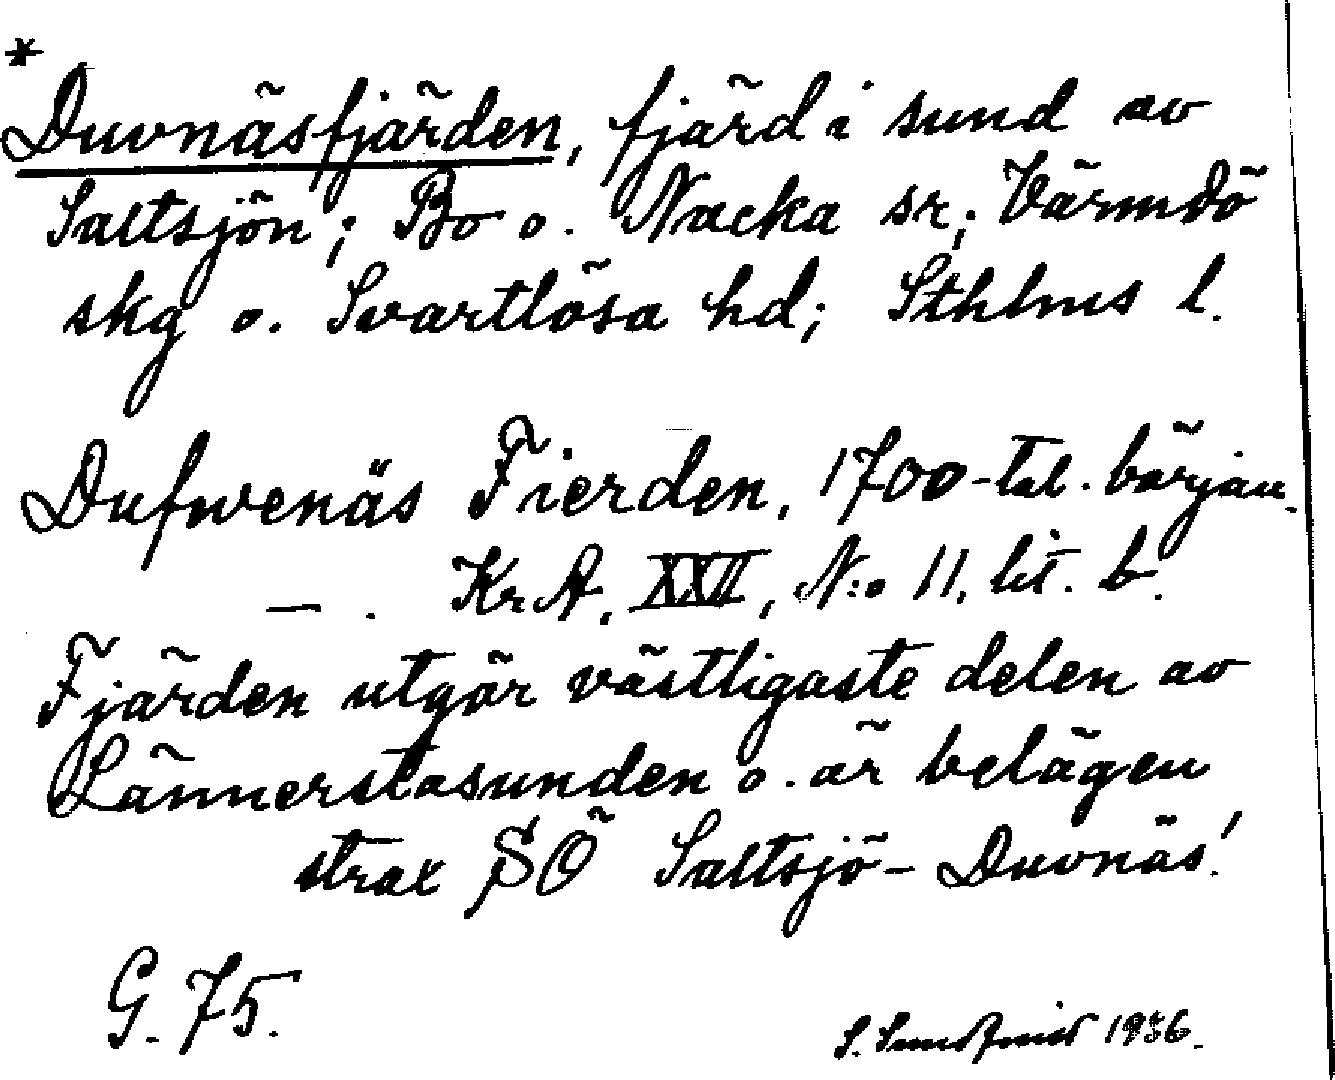 *
Duvnäsfjärden, fjärd i sund av
Saltsjön; Bo o. Nacka sr; Värmdö
skg o. Svartlösa hd; Sthlms l.
Dufwenäs Fierden, 1700-tal. börjau.
— . KrA, XXII, N:o 11, lit. b.
Fjärden utgör västligaste delen av
Lännerstasunden o. är belägen
strax SÖ Saltsjö-Duvnäs!
G. 75.
S. 1936.